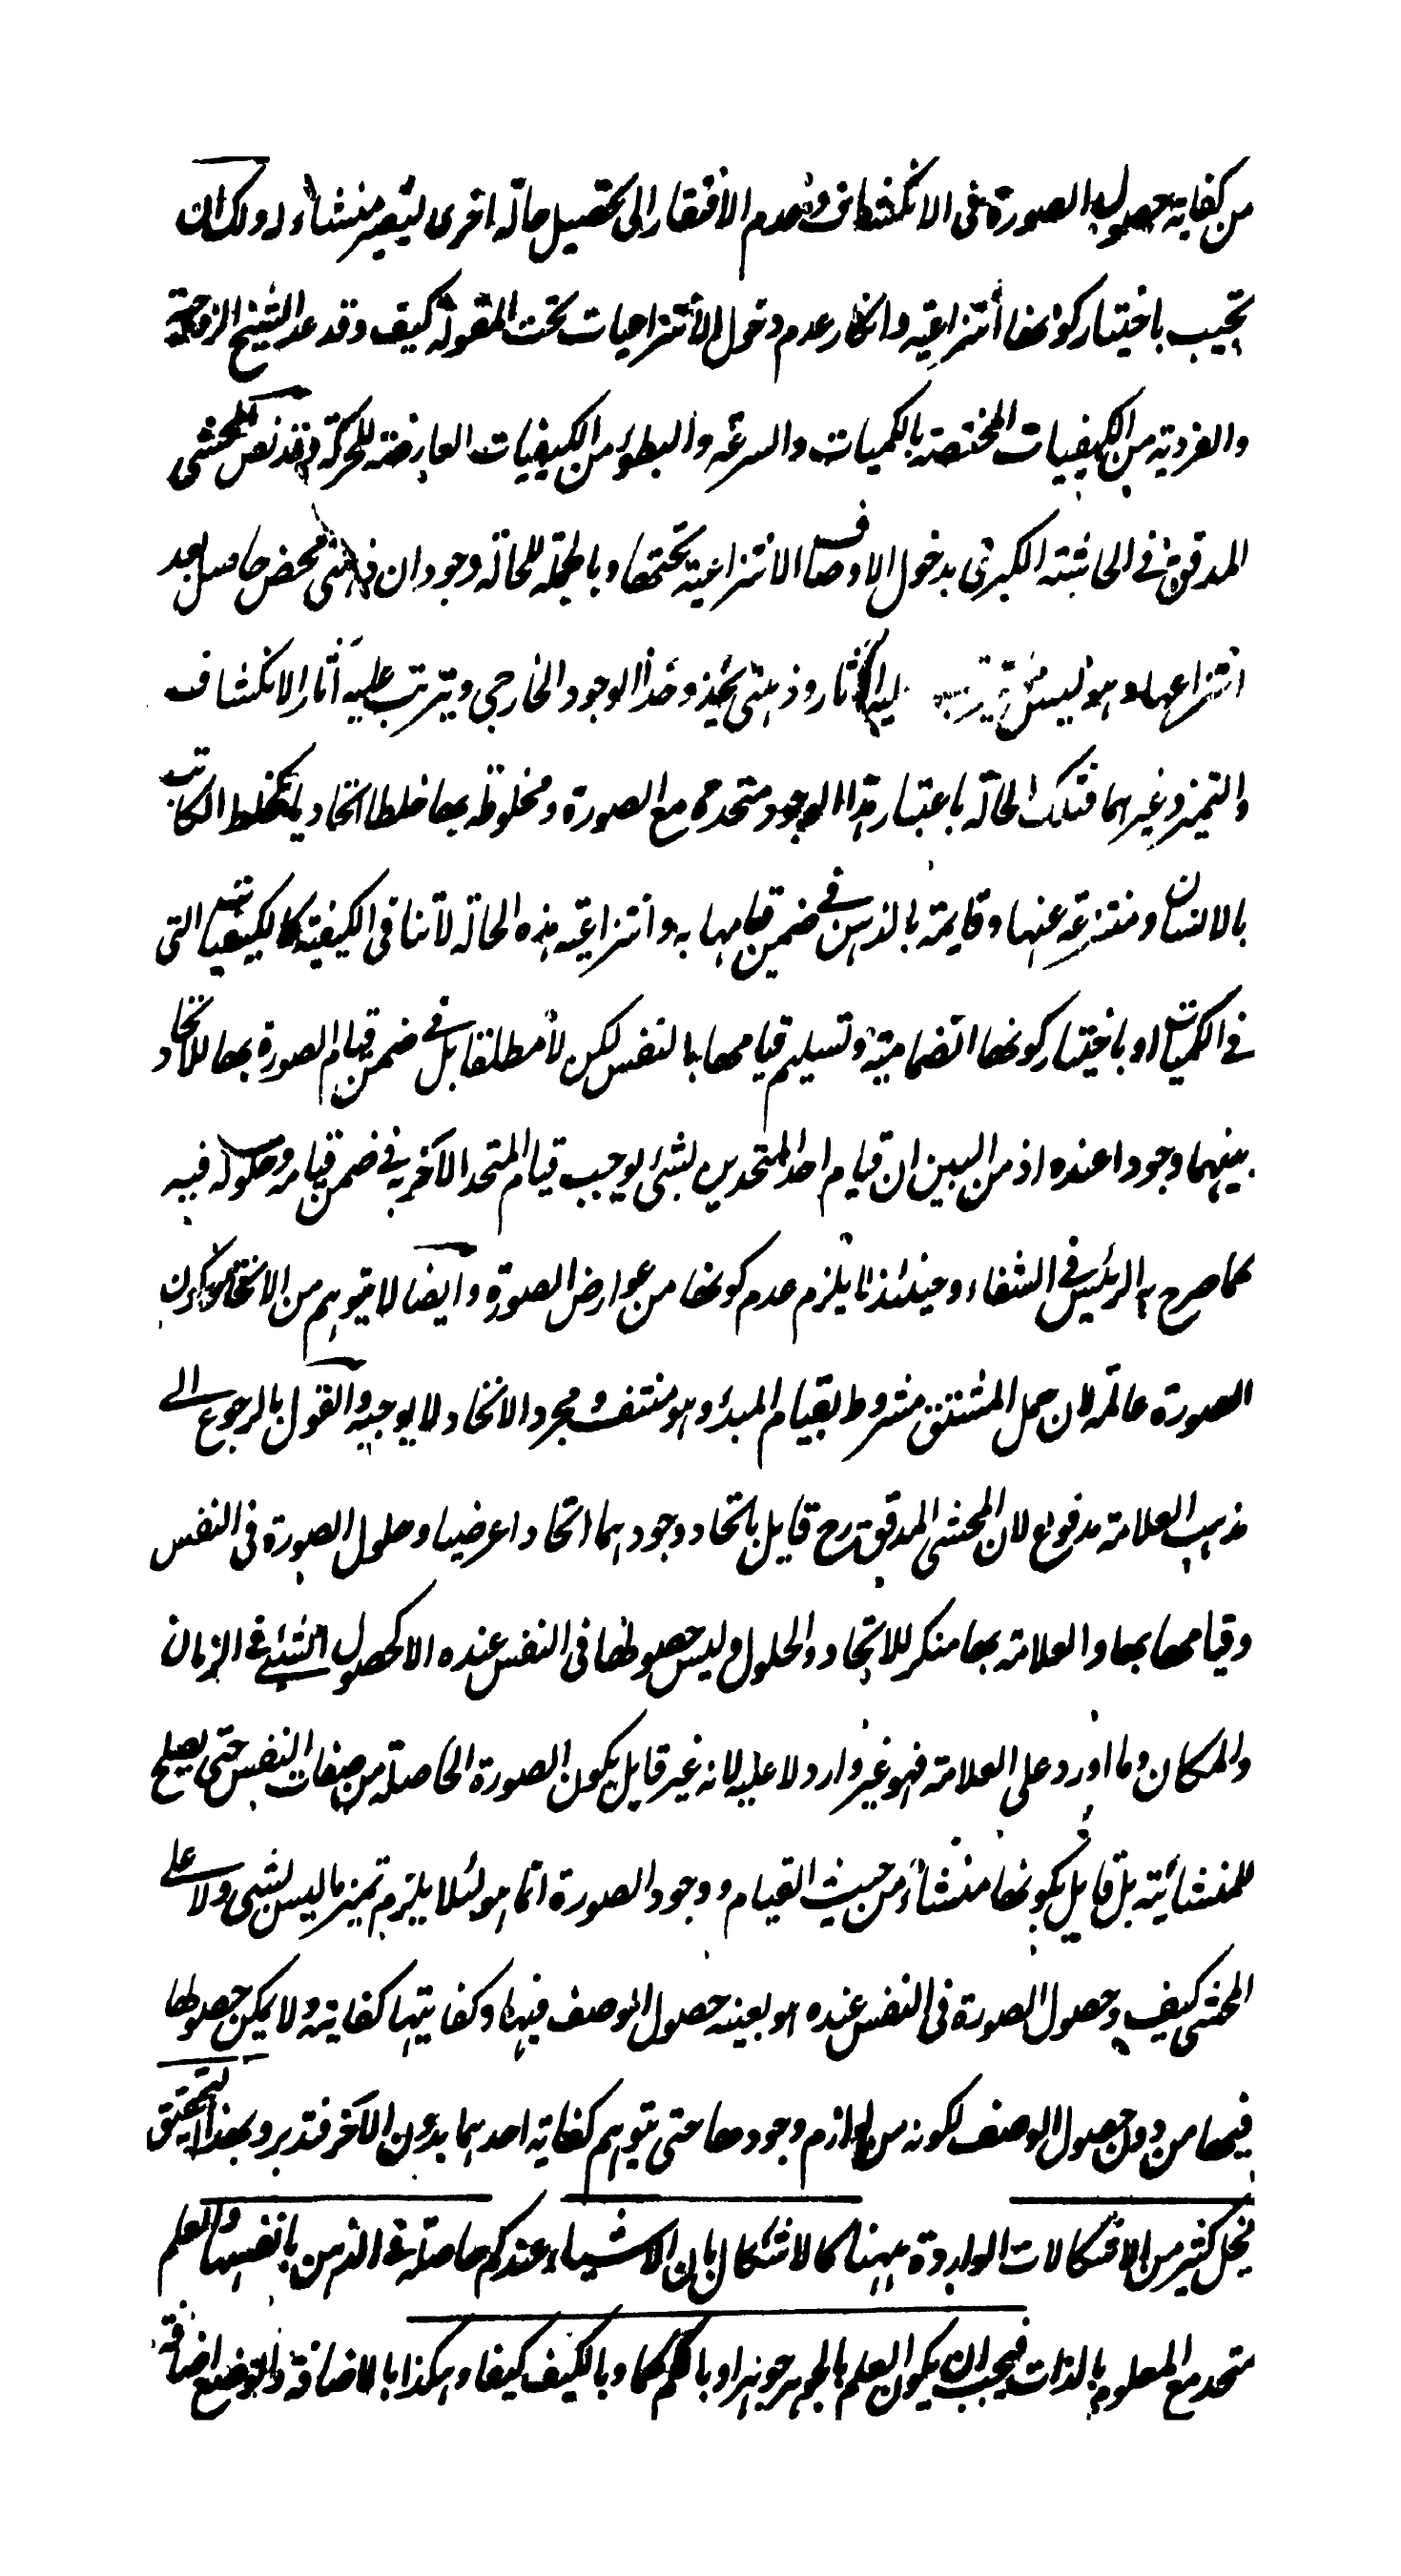 من كفاية حصول الصورة فى الانكشاف وعدم الافتقار الى تحصيل حالة اخرى ليصير منشاء له ولك ان
تجيب باختيار كونها انتزاعية وانكار عدم دخول الانتزاعيات تحت المقولة كيف وقد عد الشيخ الزوجية
والفردية من الكيفيات المختصة بالكميات والسرعة والبطؤ من الكيفيات العارضة للحركة وقد نص المحشى
المدقق فى الحاشية الكبرى بدخول الاوصاف الانتزاعية تحتها وبالجملة للحالة وجودان ذهنى محض حاصل بعد
انتزاعها وهو ليس الآثار وذهنى يحذو حذا الوجود الخارجى ويترتب عليه آثار الانكشاف
والتميز وغيرهما فتلك الحالة باعتبار هذا الوجود متحدة مع الصورة ومخلوطة بها خلطا اتحاديا كخلط الكاتب
بالانسان ومنتزعة عنها وقايمة بالذهن فى ضمن قيامها به وانتزاعية هذه الحالة لا تنافى الكيفية كالكيفيات التى
فى الكميات او باختيار كونها انضمامية وتسليم قيامها بالنفس لكن لا مطلقا بل فى ضمن قيام الصورة بها للاتحاد
بينهما وجودا عنده اذ من البين ان قيام احد المتحدين بشئ يوجب قيام المتحد الآخر به فى ضمن قيامه وحلوله فيه
كما صرح به الرئيس فى الشفاء وحينئذ لا يلزم عدم كونها من عوارض الصورة وايضا لا يتوهم من الاتحاد كون
الصورة عالمة لان حمل المشتق مشروط بقيام المبدؤ وهو منتف ومجرد الاتحاد لا يوجبه والقول بالرجوع الى
مذهب العلامة مدفوع لان المحشى المدقق رح قايل باتحاد وجودهما اتحادا عرضيا وحلول الصورة فى النفس
وقيامها بها والعلامة بها منكر للاتحاد والحلول وليس حصولها فى النفس عنده الا كحصول الشئ فى الزمان
والمكان وما اورد على العلامة فهو غير وارد لا عليه لانه غير قايل بكون الصورة الحاصلة من صفات النفس حتى يصلح
للمنشائية بل قايل بكونها منشاء من حيث القيام ووجود الصورة انما هو لئلا يلزم تميز ما ليس بشئ ولا على
المحشى كيف وحصول الصورة فى النفس عنده هو بعينه حصول الوصف فيها وكفايتها كفايته ولا يمكن حصولها
فيها من دون حصول الوصف لكونه من لوازم وجودها حتى يتوهم كفاية احدهما بدون الآخر فتدبر وبهذا التحقيق
ينحل كثير من الاشكالات الواردة ههنا كالاشكال بان الاشياء عندكم حاصلة فى الذهن بانفسها والعلم
متحد مع المعلوم بالذات فيجب ان يكون العلم بالجوهر جوهرا وبالكم كما وبالكيف كيفا وهكذا بالاضافة والوضع اضافة